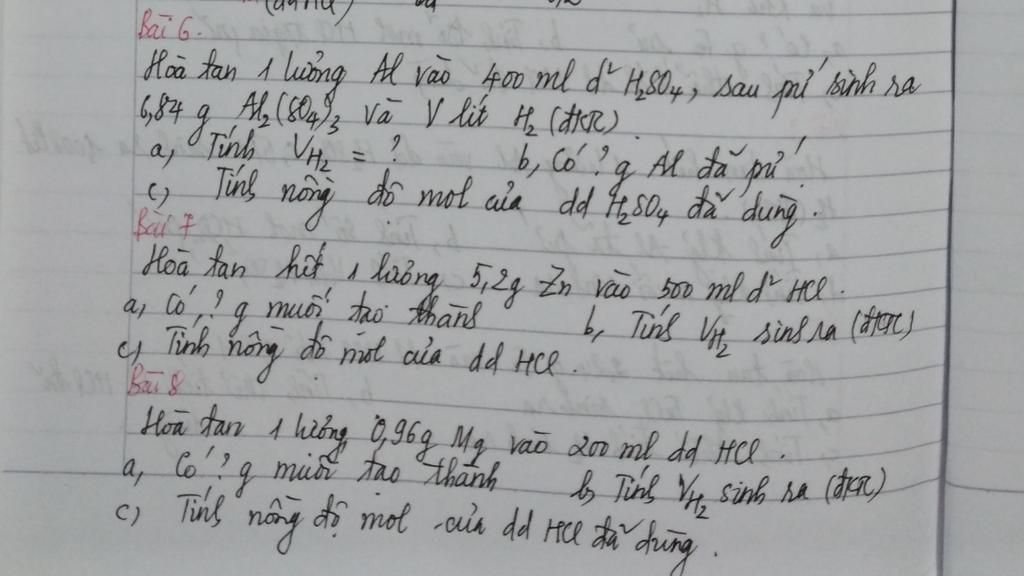 (dd HCl)
Bài 6.
Hoà tan 1 lưởng Al vào 400 ml d² H₂SO₄, sau pứ sinh ra
6,84 g Al₂(SO₄)₃ và V lít H₂ (đktc)
a, Tính V H₂ = ? b, Có ? g Al đã pứ!
c, Tính nồng độ mol của dd H₂SO₄ đã dùng.
Bài 7
Hoà tan hết 1 lưởng 5,2g Zn vào 500 ml d² HCl.
a, Có ? g muối tạo thành b, Tính V H₂ sinh ra (đktc)
c, Tính nồng độ mol của dd HCl.
Bài 8
Hoà tan 1 lưởng 0,96g Mg vào 200 ml dd HCl.
a, Có ? g muối tạo thành b, Tính V H₂ sinh ra (đktc)
c, Tính nồng độ mol của dd HCl đã dùng.